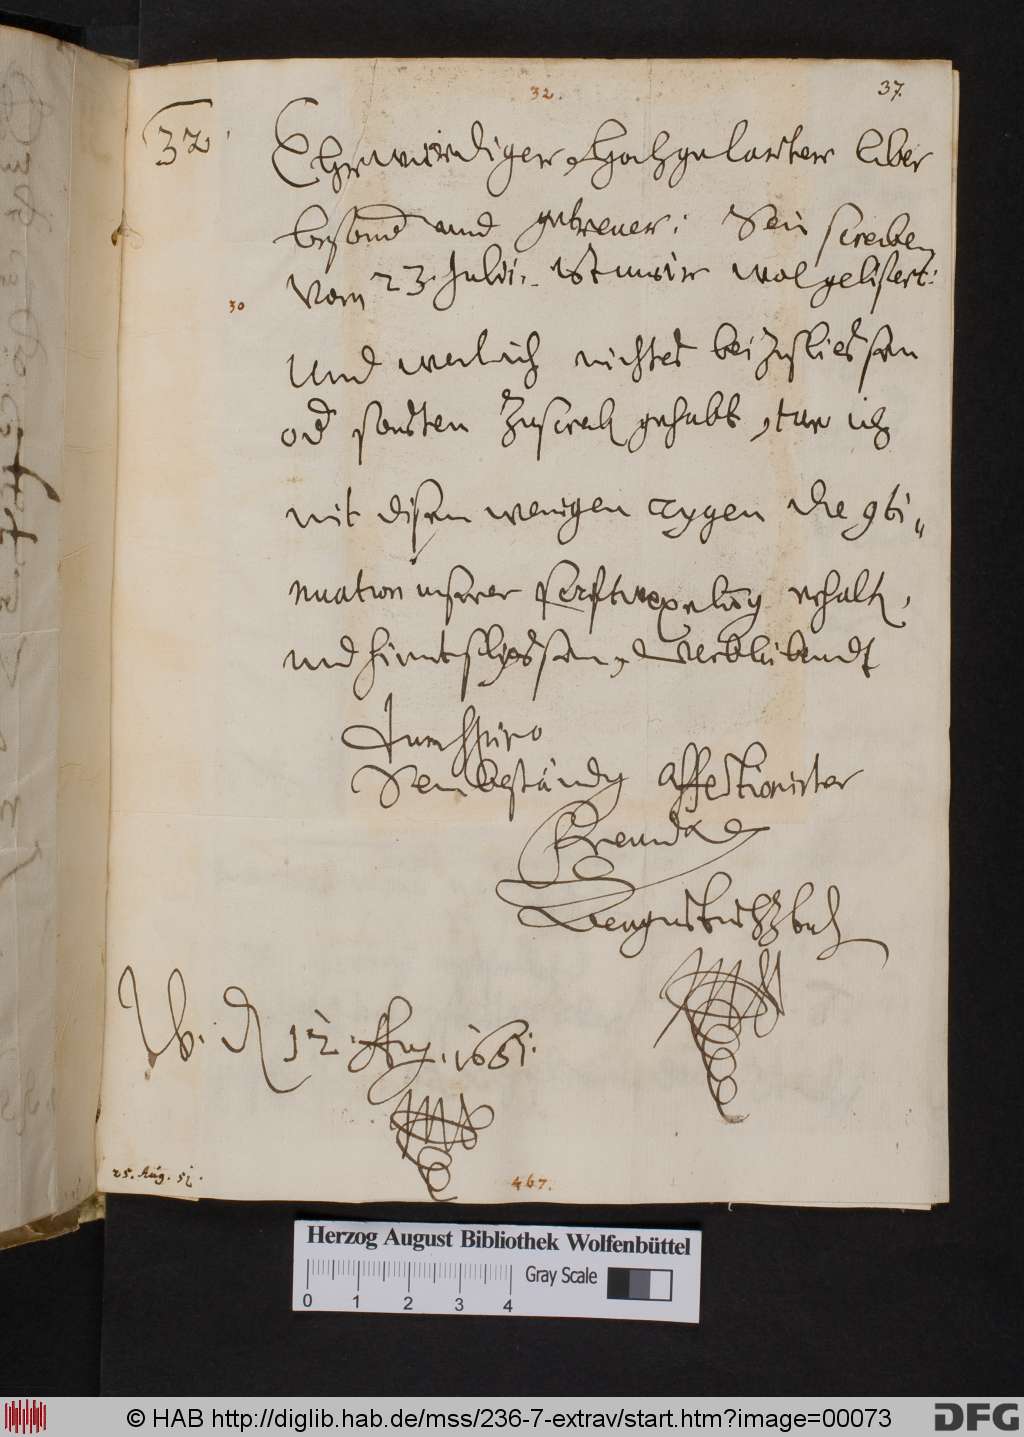 32.
37.
32.
Ehrwürdiger Hochgelarter lieber
besond und getrewer: Sein screiben
vom 23. Julii. ist mir wol gelifert:
30
Und weil ich nichtes beizuslieссen
od sonsten zu screib gehabt, tue ich
mit disem wenigen die 9ti„
nuation unserer scriftwexelung erhalt,
und himit sliessen, Verbleibendt
Sein beständig affectionirter
Freund
Augustus
Wb. d 12. Aug. 1651:
25. Aug. 51.
467.
Herzog August Bibliothek Wolfenbüttel
Gray Scale
0 1 2 3 4
© HAB http://diglib.hab.de/mss/236-7-extrav/start.htm?image=00073
DFG